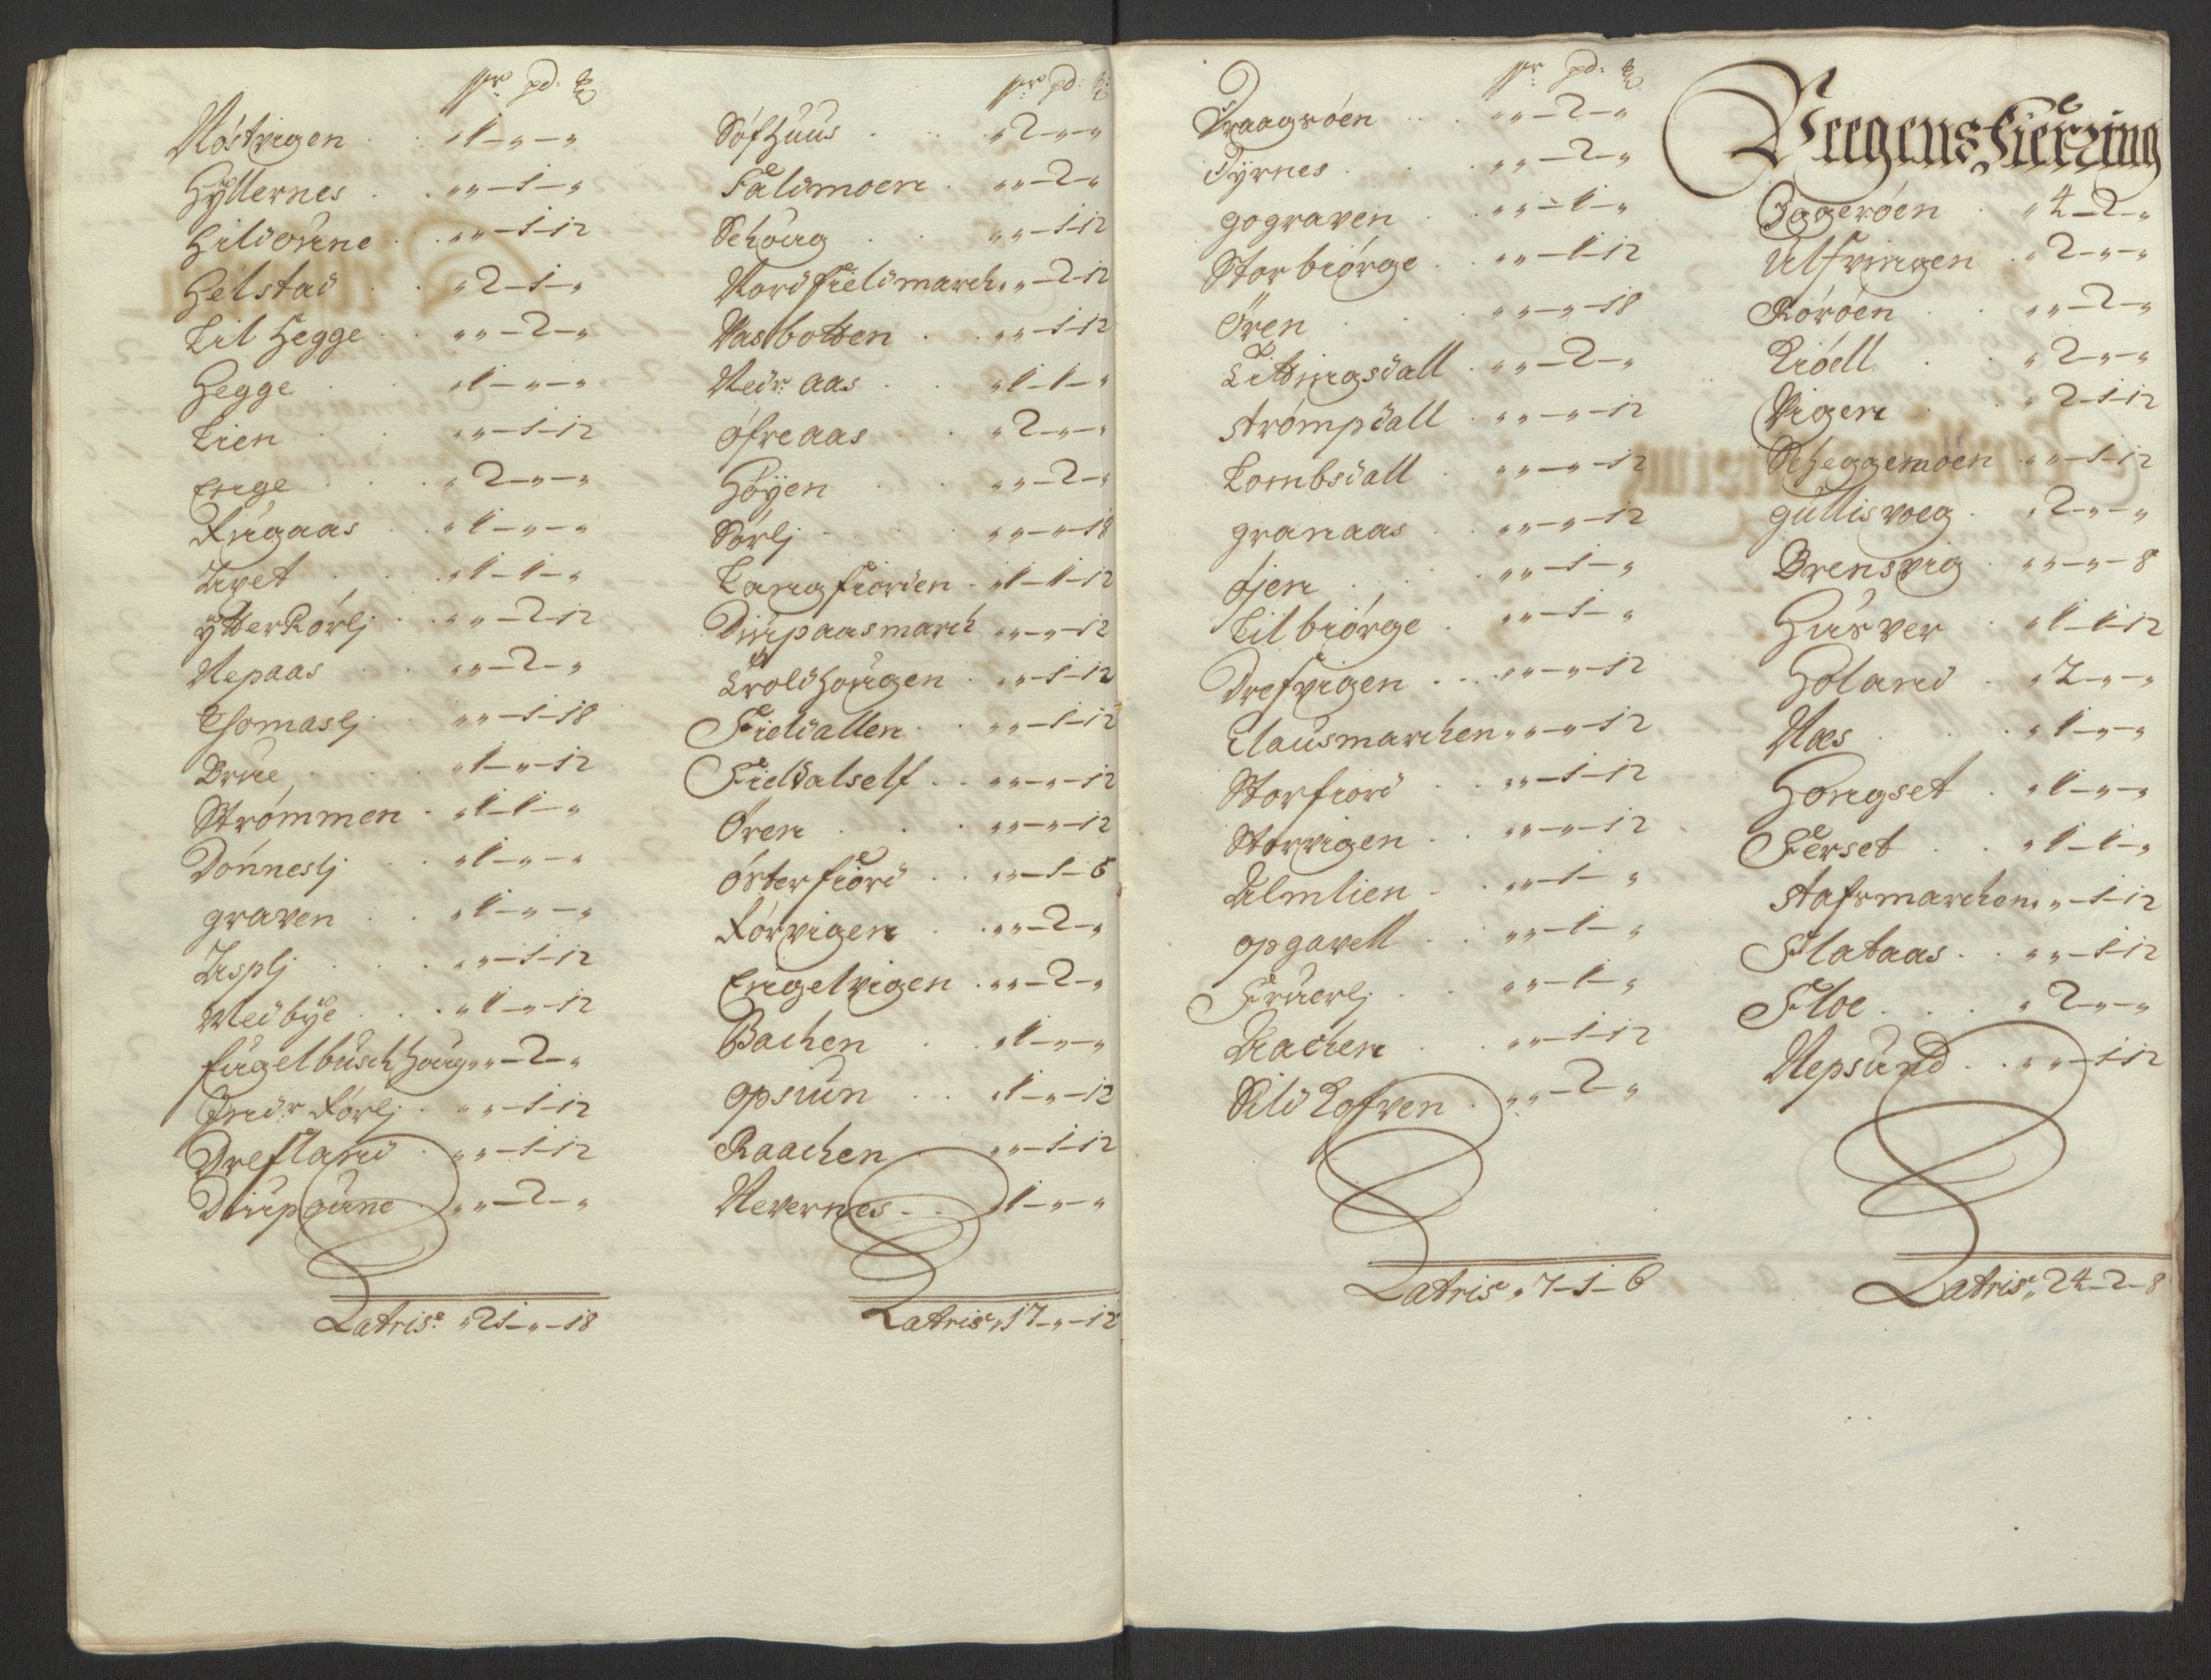 spr pd: ℔
Nóstvigen . . „1-„-„
Hyllernes . „„-1-„
Hildoune . „„-1-12
Helstad . „2-1-„
Lil Hegge . „„-2-„
Hegge . . „1-„-„
Lien . . „„-1-12
Enge . . „2-„-„
Kragaas . . „1-„-„
Uvet . . „1-1-„
ytter Rórlj . „„-2-12
Nepaas . . „„-2-„
Thomaslj . „„-1-18
Brue . . „1-„-12
Strómmen . „1-1-„
Dónneslj . „1-„-„
graven . . „1-„-„
Asplj . . „„-1-12
Medbye . . „1-„-12
fugelbusch houg „„-2-„
Indr Rórlj . „„-1-12
Drefland . „„-1-12
Diupoune . „„-2-„
Latris: „21-„-18
spr pd: ℔
Sófhuus . . „2-„-„
Faldmoen . „„-2-„
Schoug . . „„-1-12
Nordfieldmarch „„-2-12
Vasbotten . . „„-1-12
Nedr: aas . . „1-1-„
ófre aas . „2-„-„
Hóyen . . „„-2-„
Sórlj . . „„-„-18
Langfiorden . „1-1-12
Diupaasmarch „„-„-12
Troldhougen . „„-1-12
Fieldallen . „„-1-12
Fieldalself . . „„-„-12
Óren . . . „„-„-12
ósterfiord . . „„-1-6
Rórvigen . . „„-2-„
Engelvigen . „„-2-„
Bachen . . „1-„-„
opsiun . . „1-„-12
Raachen . „„-1-12
Nevernes . . „1-„-„
Latris: „17-„-12
spr: pd: ℔
Kraagsóen . . „„-2-„
Dyrnes . . „„-2-„
gograven . „„-1-„
Storbiórge . „„-1-12
Óren . . . „„-„-18
Littingsdall . „„-2-„
strómpdall . „„-„-12
Lombsdall . „„-„-12
granaas . „„-„-12
ójen . . . „„-1-„
Lilbiórge . „„-1-„
Drefvigen . . „„-„-12
Clausmarchen „„-„-12
Storfiord . „„-1-12
Storvigen . . „„-„-12
Almlien . . „„-1-„
opgavell . . „„-1-„
Fruerlj . . „„-1-„
Aachen . „„-1-12
Sild Kofven . „„-2-„
Latris: „7-1-6
Veegens Fierzing
Eggeróen . „4-2-„
Ulfvingen . „2-„-„
Róróen . . „„-2-„
Kióell . . „2-„-„
Vigen . . „2-1-12
Scheggemóen „„-1-12
gullisvoeg . „2-„-„
Brensvig . „„-„-8
Husver . „1-1-12
Holand . „2-„-„
Næs . . „1-„-„
Hongset . „1-„-„
Ferset . . „1-1-„
stafsmarchen „„-1-12
Flataas . . „„-1-12
Floe . . . „2-„-„
Nepsund . . „„-1-12
Latris: „24-2-8